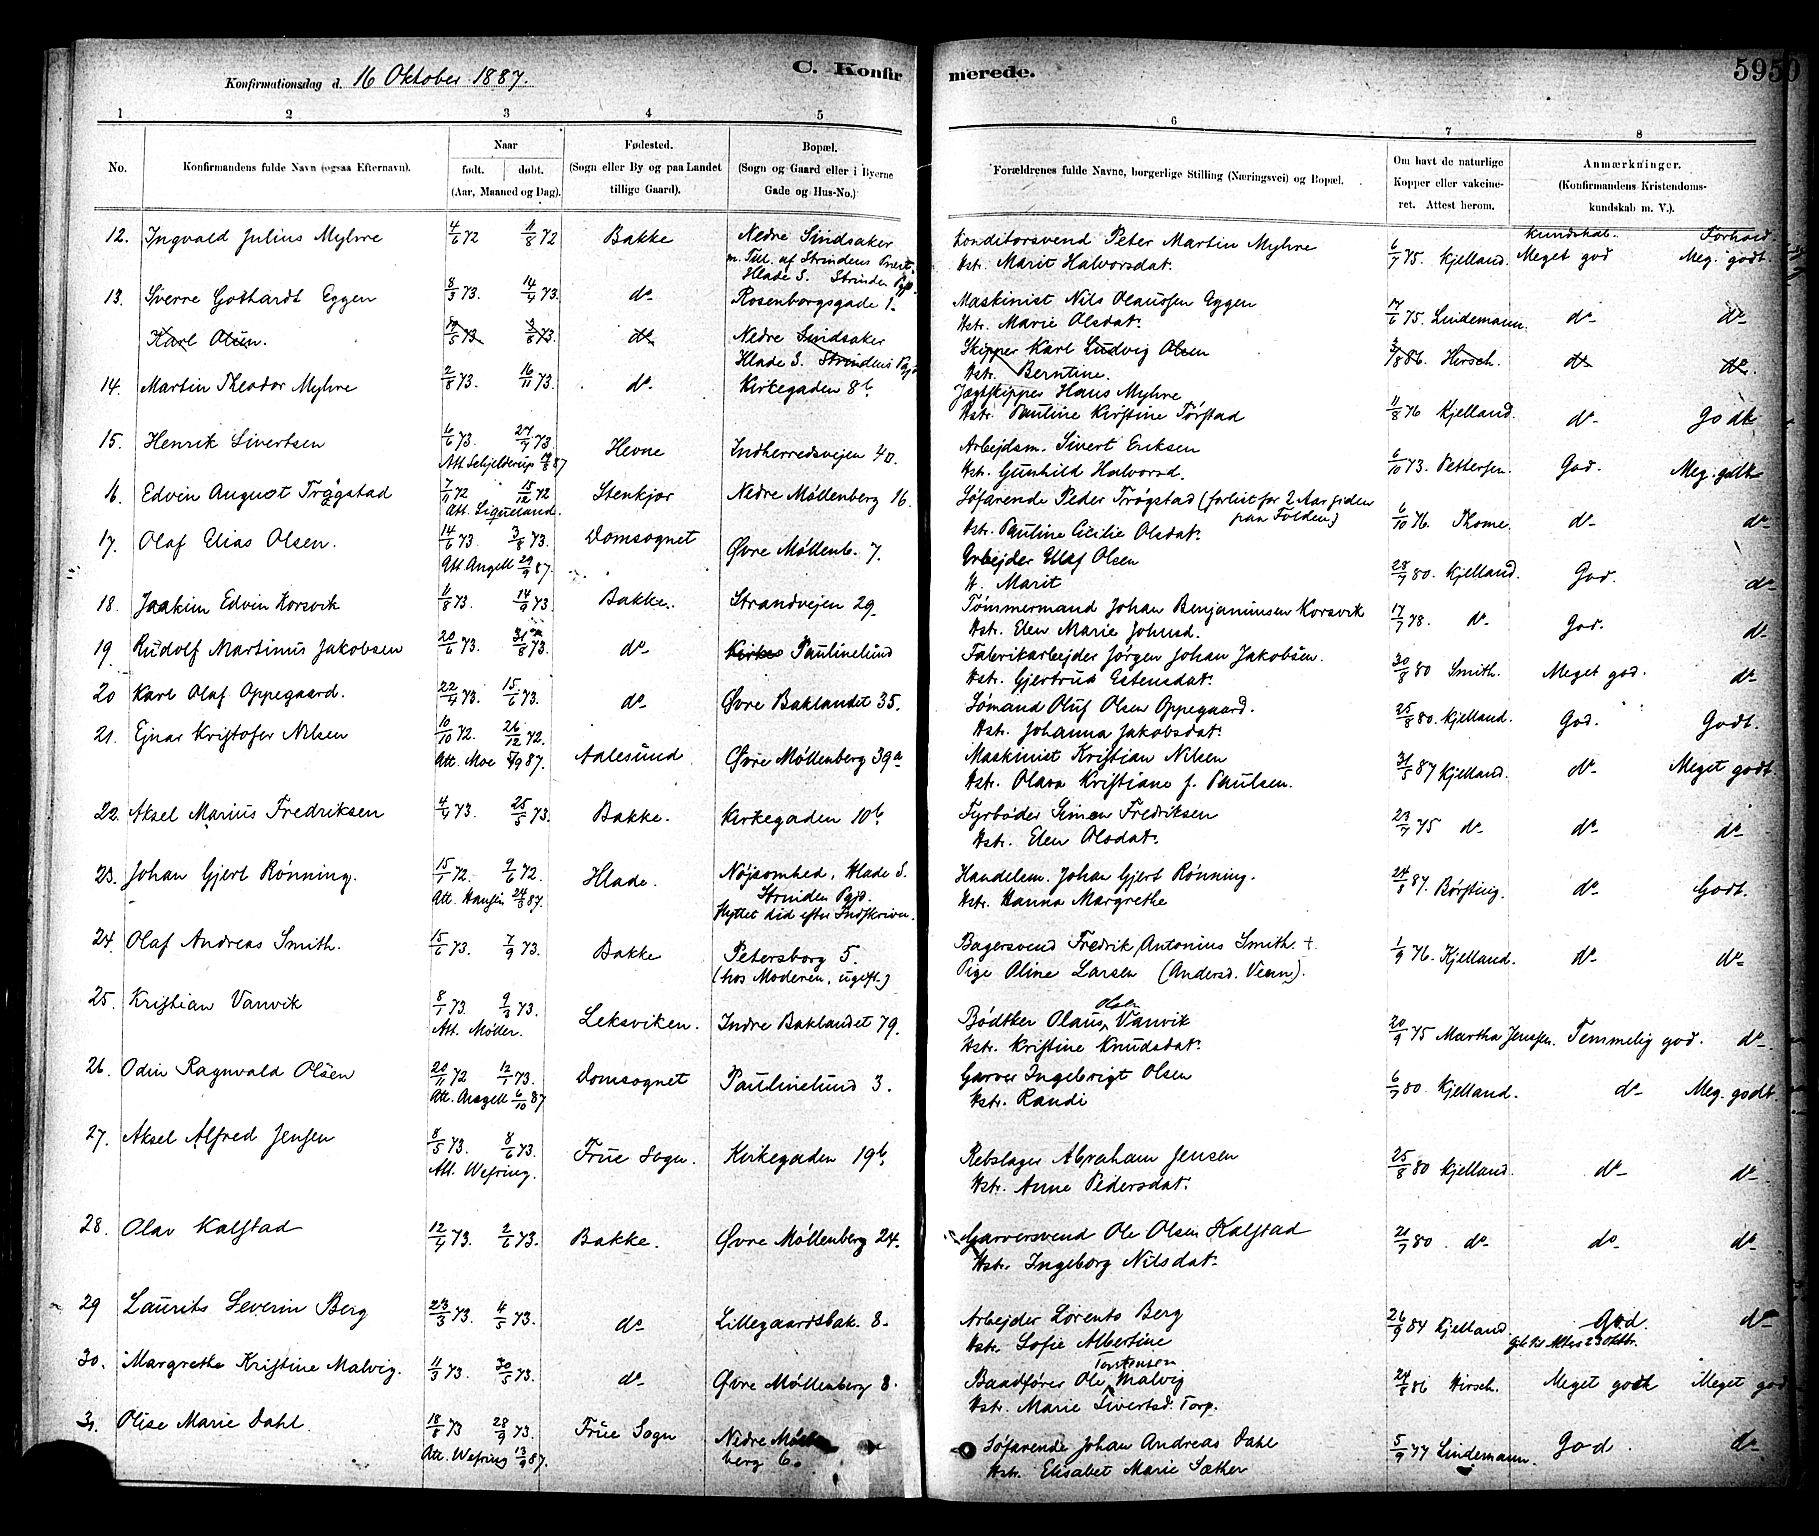 Konfirmationsdag d. 16 Oktober 1887.
C. Konfirmerede.
5950
1 2 3 4 5 6 7 8
No.
Konfirmandens fulde Navn (ogsaa Efternavn).
Naar født. døbt. (Aar, Maaned og Dag).
Fødested. (Sogn eller By og paa Landet tillige Gaard).
Bopæl. (Sogn og Gaard eller i Byerne Gade og Hus-No.)
Forældrenes fulde Navne, borgerlige Stilling (Næringsvei) og Bopæl.
Om havt de naturlige Kopper eller vakcineret. Attest herom.
Anmærkninger. (Konfirmandens Kristendomskundskab m. V.).
Kundskab. Forhold.
12. Ingvald Julius Myhre 4/6 72 11/8 72 Bakke Nedre Sindsaker
m. Till. af Strindens Præst.
Hlade S. Strinden Pgjd.
Konditorsvend Peter Martin Myhre
Hstr. Marit Halvorsdat. 6/7 75. Kjelland. Meget god Meg. godt
13. Sverre Gothardt Eggen 8/3 73. 14/4 73. do Rosenborgsgade 1.
Maskinist Nils Olaussen Eggen
Hstr. Marie Olsdat. 17/6 75. Lindemann. do do
Karl Olsen. 19/5 73 3/8 73. do Nedre Sindsaker
Hlade S. Strindens Pgjd
Skipper Karl Ludvig Olsen
Hstr. Berntine. 3/8 86. Hirsch. do do
14. Martin Theodor Myhre 2/8 73. 16/11 73. do Kirkegaden 8b
Jægtskipper Hans Myhre
Hstr. Pauline Kirstine Torstad 11/8 76 Kjelland. do Godt
15. Henrik Sivertsen 6/6 73. 27/7 73 Hevne Indherredsvejen 40.
Att. Schjelderup 19/8 87
Arbejdsm. Sivert Eriksen
Hstr. Gunhild Halvorsd. 6/10 73. Pettersen God. Meg. godt
16. Edvin August Trøgstad 7/11 72 15/12 72 Stenkjær Nedre Møllenberg 16.
Att. Siqueland.
Søfarende Peder Trøgstad (forlist for 2 Aar siden
paa Folden)
Hstr. Pauline Cecilie Olsdat. 6/10 76. Thome. do do
17. Olaf Elias Olsen. 14/6 73. 3/8 73. Domsognet Øvre Møllenb. 7.
Att. Angell 29/9 87.
Arbejder Ellaf Olsen
H. Marit 28/7 80. Kjelland. God. do
18. Joakim Edvin Korsvik 11/8 73. 14/9 73. Bakke. Strandvejen 29
Tømmermand Johan Benjaminsen Korsvik
Hstr. Elen Marie Johnsd. 17/7 78. do God. do
19. Rudolf Martinus Jakobsen 20/6 73. 31/8 73. do Kirke Paulinelund
Fabrikarbejder Jørgen Johan Jakobsen.
Hstr. Gjertrud Estensdat. 30/8 80 Smith. Meget god. do
20 Karl Olaf Oppegaard. 22/4 73. 15/6 73. do Øvre Baklandet 35.
Sømand Oluf Olsen Oppegaard.
Hstr. Johanna Jakobsdat. 25/8 80. Kjelland. God. Godt.
21. Ejnar Kristofer Nilsen 10/10 72. 26/12 72. Aalesund Øvre Møllenberg 39a
Att. Moe 7/9 87.
Maskinist Kristian Nilsen
Hstr. Olava Kristiane f. Paulsen. 31/5 87 Kjelland. do Meget godt.
22. Aksel Marius Fredriksen 4/4 73. 25/5 73. Bakke. Kirkegaden 10b
Fyrbøder Simen Fredriksen
Hstr. Elen Olsdat. 23/7 75 do do do
23. Johan Gjert Rønning. 15/1 72. 9/6 72. Hlade. Nøjsomhed, Hlade S.
Strinden Pgjd.
Flyttet did efter Indskriven.
Att. Hansen 24/8 87.
Handelsm. Johan Gjert Rønning.
Hstr. Hanna Margrethe 24/8 87. Børsting. do Godt.
24. Olaf Andreas Smith. 15/6 73. 7/9 73. Bakke Petersborg 5.
(hos Moderen, ugift.)
Bagersvend Fredrik Antonius Smith. +
Pige Oline Larsen (Andersd. Vean). 1/9 76. Kjelland. do do
25. Kristian Vanvik 8/1 73. 9/3 73. Leksviken. Indre Baklandet 79.
Att. Møder.
Olsen
Bødtker Olaus Vanvik
Hstr. Kristine Knudsdat. 20/9 75 Martha Jenssen. Temmelig god. do
26. Odin Ragnvald Olsen 20/11 72 12/1 73. Domsognet Paulinelund 3.
Att. Angell 6/10 87
Garver Ingebrigt Olsen
Hstr. Randi 6/7 80 Kjelland. do Meg. godt.
27. Aksel Alfred Jensen 8/5 73. 8/6 73. Frue Sogn. Kirkegaden 19b.
Att. Wefring.
Rebslager Abraham Jensen
Hstr. Anne Pedersdat. 25/8 80 Kjelland. do do
28. Olav Kalstad 12/4 73. 2/6 73. Bakke. Øvre Møllenberg 24.
Garversvend Ole Olsen Kalstad
Hstr. Ingeborg Nilsdat. 21/7 80. do do do
29 Laurits Severin Berg 23/3 73. 4/5 73. do Lillegaardsbak. 8.
Arbejder Lorents Berg
Hstr. Sofie Albertine 26/9 84 Kjelland. God. do
30. Margrethe Kristine Malvig. 11/3 73. 30/5 73. do Øvre Møllenberg 8.
Torstensen
Baadfører Ole Malvig
Hstr. Marie Sivertsd. Torp. 24/8 86 Hirsch. Meget godt Meget god
31. Olise Marie Dahl. 18/8 73 28/9 73. Frue Sogn Nedre Møllenberg 6.
Att. Wefring 13/9 87.
Søfarende Johan Andreas Dahl
Hstr. Elisabet Marie Sæther 5/9 77 Lindemann. God. do